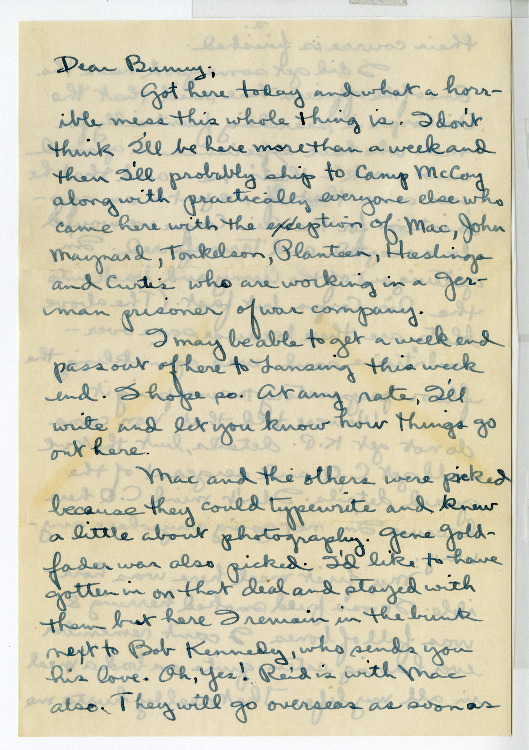 Dear Bunny;
Got here today and what a horr-
ible mess this whole thing is. I don't
think I'll be here more than a week and
then I'll probably ship to Camp McCoy
along with practically everyone else who
came here with the exception of Mac, John
Maynard, Tonkelson, Planteen, Haslings
and Curtis who are working in a Ger-
man prisoner of war company.
I may be able to get a week end
pass out of here to Lansing this week
end. I hope so. At any rate, I'll
write and let you know how things go
out here.
Mac and the others were picked
because they could typewrite and knew
a little about photography. Gene Gold-
fader was also picked. I'd like to have
gotten in on that deal and stayed with
them but here I remain in the bunk
next to Bob Kennedy, who sends you
his love. Oh, Yes! Reid is with Mac
also. They will go overseas as soon as